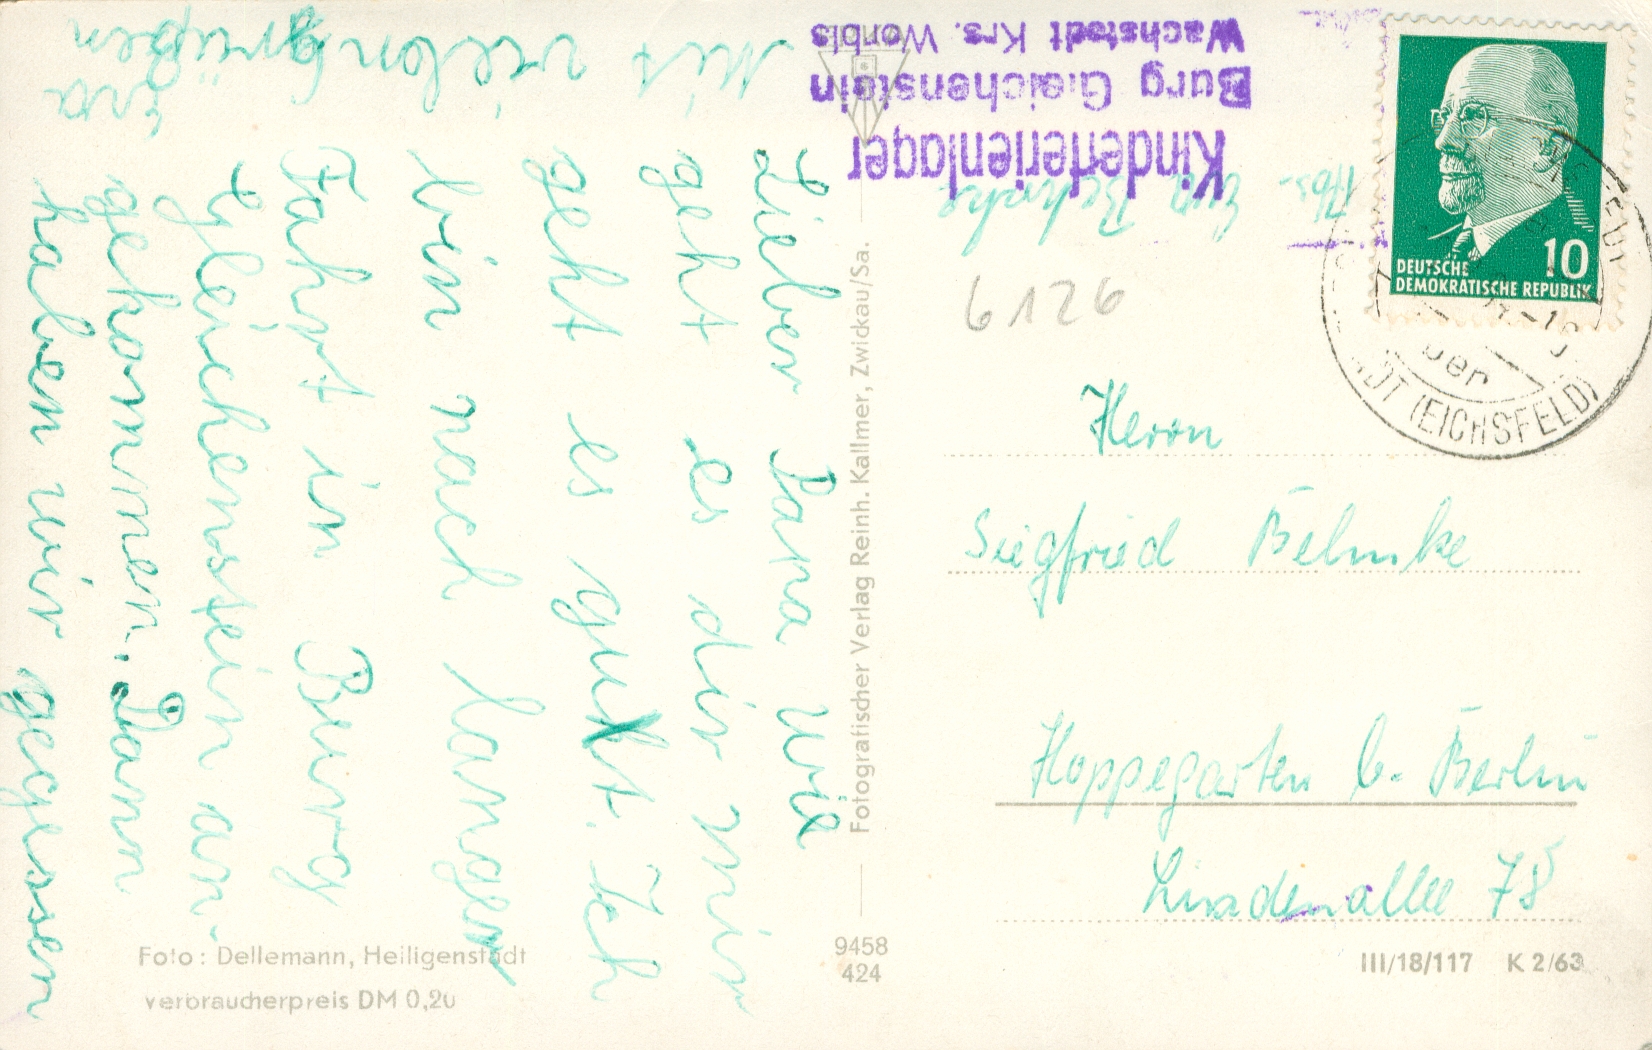 Lieber Papa wie
geht es dir mir
geht es gut. Ich
bin nach langer
Fahrt in Burg
Gleichenstein an-
gekommen. Dann
haben wir gegessen
Mit vielen grüßen
Eva
Kinderferienlager
Burg Gleichenstein
Wachstedt Krs. Worbis
Abs. Eva
6126
DEUTSCHE
DEMOKRATISCHE REPUBLIK
10
(EICHSFELD)
Herrn
Siegfried Behnke
Hoppegarten b. Berlin
Lindenallee 78
Fotografischer Verlag Reinh. Kallmer, Zwickau/Sa.
Foto: Dellemann, Heiligenstadt
verbraucherpreis DM 0,20
9458
424
III/18/117 K 2/63